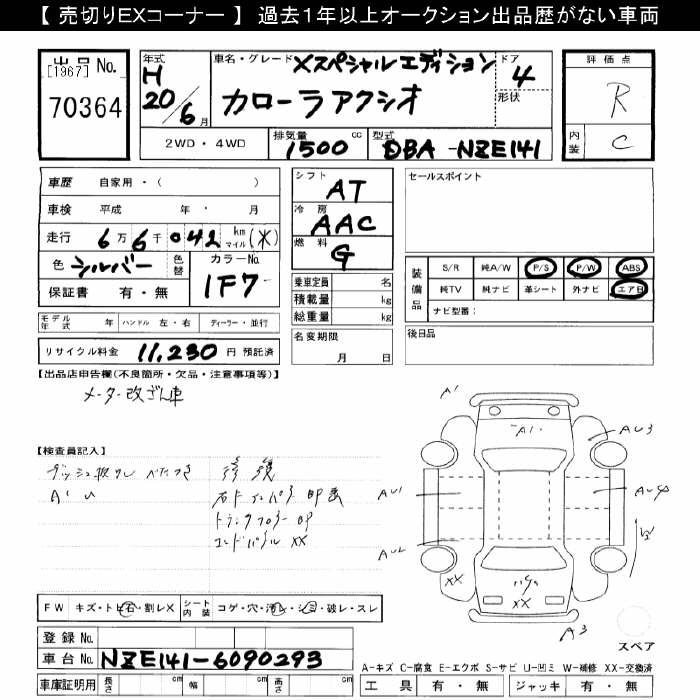 【 売切りEXコーナー 】 過去1年以上オークション出品歴がない車両
出品 No.
[1967]
70364
年式 H 20/6 月
車名・グレード Xスペシャルエディション
カローラアクシオ
ドア 4
形状
2WD・4WD
排気量 1500 cc
型式 DBA-NZE141
評価点
R
内装 C
車歴 自家用・( )
車検 平成 年・ 月
走行 6万6千042 km マイル (*)
色 シルバー 色替 カラーNo. 1F7
保証書 有・無
シフト AT
冷房 AAC
燃料 G
乗車定員 名
積載量 kg
総重量 kg
セールスポイント
装備品 S/R 純A/W P/S P/W ABS
純TV 純ナビ 革シート 外ナビ エアB
ナビ型番:
モデル年式 年 ハンドル 左・右 ディーラー・並行
名変期限 月 日
後日品
リサイクル料金 11,230 円 預託済
【出品店申告欄(不良箇所・欠品・注意事項等)】
メーター改ざん車
【検査員記入】
A' U
修復
トランクフロアー
XX
A1
A1
AU3
AU1
AU4
AU2
W
XX
XX
A3
スペア
FW キズ・トビ石・割レX シート内装 コゲ・穴・汚レ・シミ・破レ・スレ
登録 No.
車台 No. NZE141-6090293
車庫証明用 長さ cm 幅 cm 高さ cm
A-キズ C-腐食 E-エクボ S-サビ U-凹ミ W-補修 XX-交換済
工具 有・無 ジャッキ 有・無